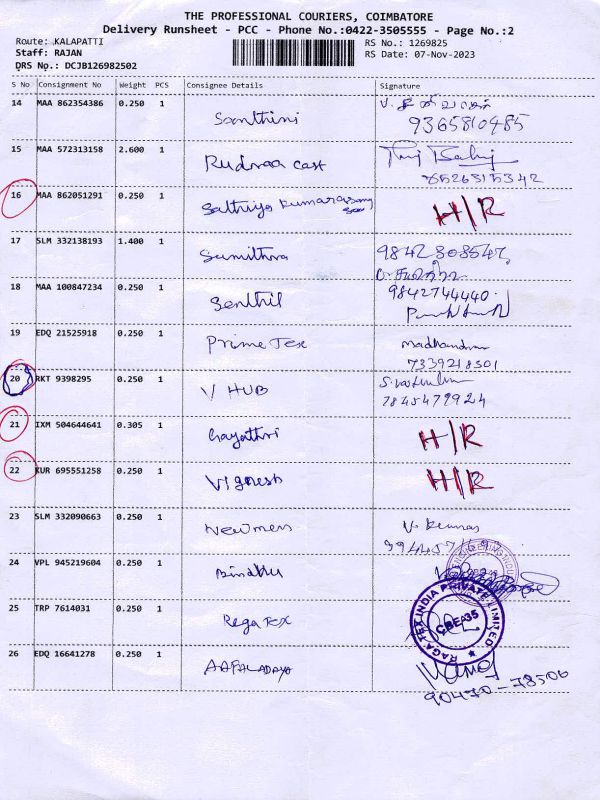 THE PROFESSIONAL COURIERS, COIMBATORE
Delivery Runsheet - PCC - Phone No.:0422-3505555 - Page No.:2
Route: KALAPATTI
RS No.: 1269825
Staff: RAJAN
RS Date: 07-Nov-2023
DRS No.: DCJB126982502
S No Consignment No Weight PCS Consignee Details Signature
14 MAA 862354386 0.250 1 Santhini
9365810485
15 MAA 572313158 2.600 1 Rudraa cast
8526315342
16 MAA 862051291 0.250 1 Sathiya Kumar H/R
17 SLM 332138193 1.400 1 Sumithra 9842308547
18 MAA 100847234 0.250 1 Senthil 9842744440
19 EDQ 21525918 0.250 1 Prime Tex Madhandram
7339218301
20 RKT 9398295 0.250 1 V HUB
7845479924
21 IXM 504644641 0.305 1 Gayathri H/R
22 KUR 695551258 0.250 1 Vignesh H/R
23 SLM 332090663 0.250 1 Newmen V. Kumar
24 VPL 945219604 0.250 1 Bindhu
25 TRP 7614031 0.250 1 Rega Tex
RAGATEX INDIA PRIVATE LIMITED
CBE-35
26 EDQ 16641278 0.250 1 AAPALADAYA Manoj
90470-78506